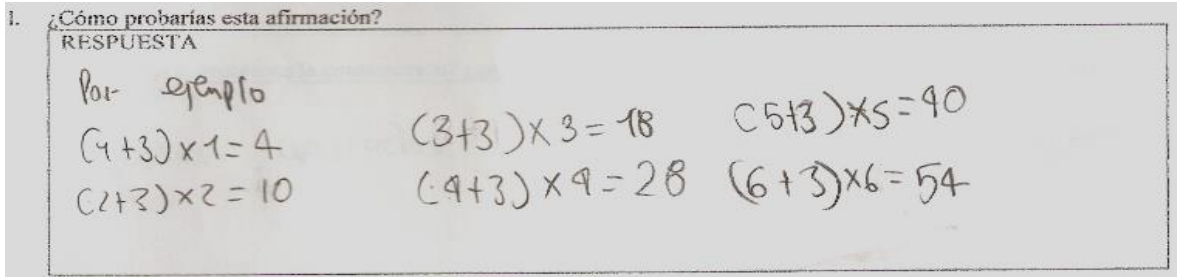 1. ¿Cómo probarías esta afirmación?
RESPUESTA
Por ejemplo
(1+3)×1=4 (3+3)×3=18 (5+3)×5=40
(2+3)×2=10 (4+3)×4=28 (6+3)×6=54